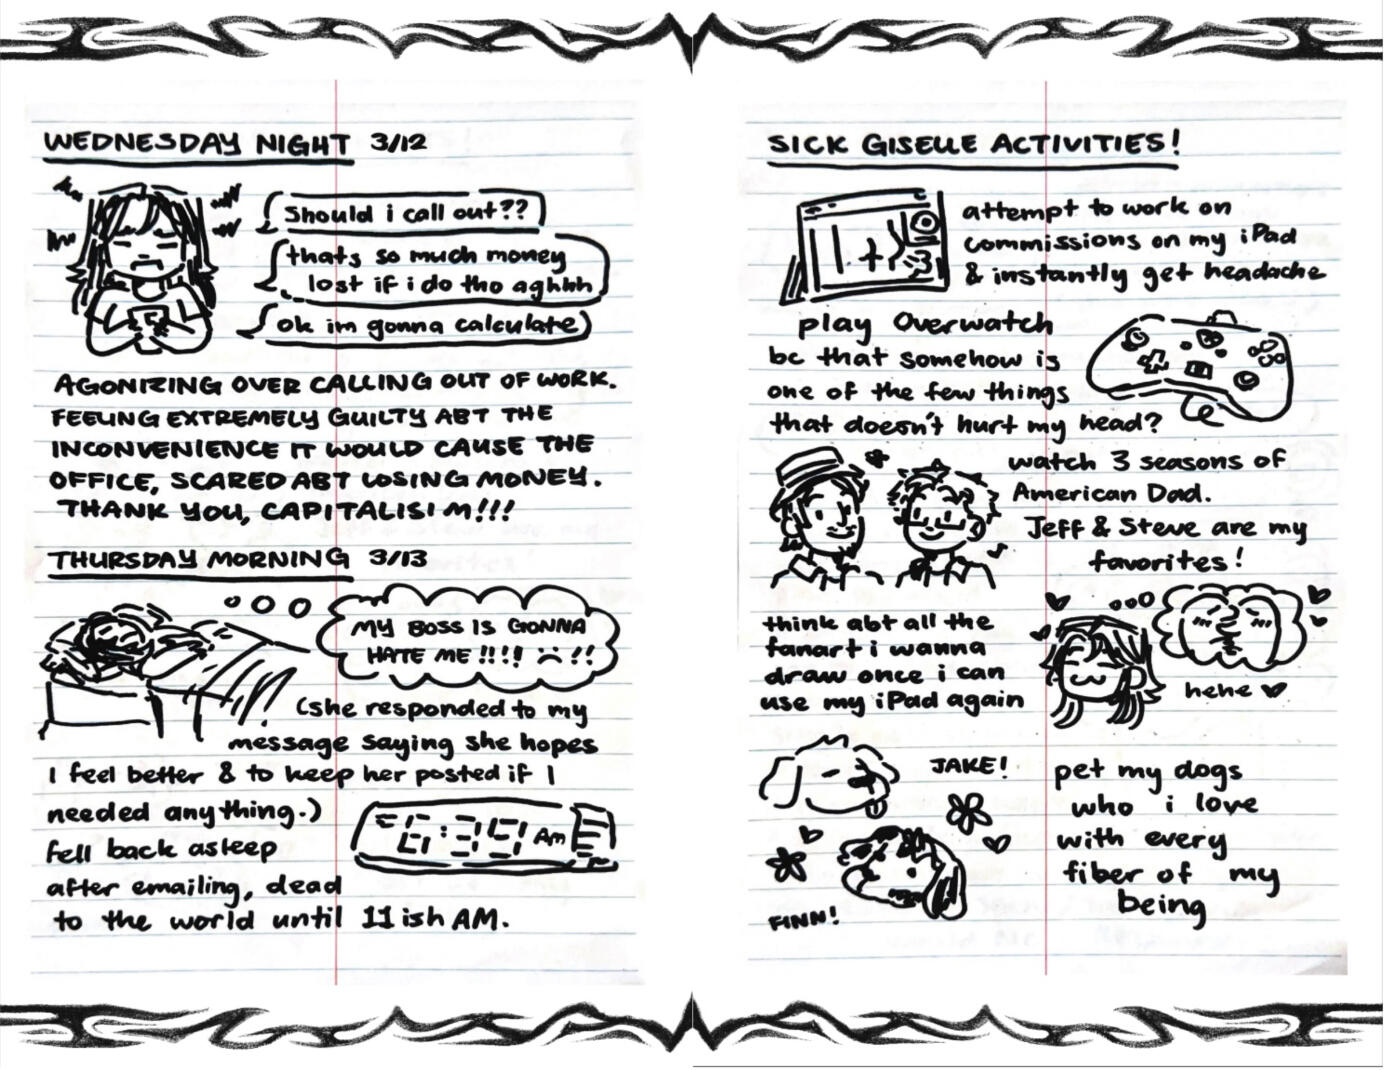 WEDNESDAY NIGHT 3/12
Should i call out??
thats so much money
lost if i do tho aghhh
ok im gonna calculate
AGONIZING OVER CALLING OUT OF WORK.
FEELING EXTREMELY GUILTY ABT THE
INCONVENIENCE IT WOULD CAUSE THE
OFFICE, SCARED ABT LOSING MONEY.
THANK YOU, CAPITALISIM!!!
THURSDAY MORNING 3/13
MY BOSS IS GONNA
HATE ME !!!! :( !!
(she responded to my
message saying she hopes
I feel better & to keep her posted if I
needed anything.)
fell back asleep
after emailing, dead
to the world until 11 ish AM.
6:39 AM
SICK GISELLE ACTIVITIES!
attempt to work on
commissions on my iPad
& instantly get headache
play Overwatch
bc that somehow is
one of the few things
that doesn't hurt my head?
watch 3 seasons of
American Dad.
Jeff & Steve are my
favorites!
think abt all the
fanart i wanna
draw once i can
use my iPad again
hehe ♥
JAKE!
FINN!
pet my dogs
who i love
with every
fiber of my
being